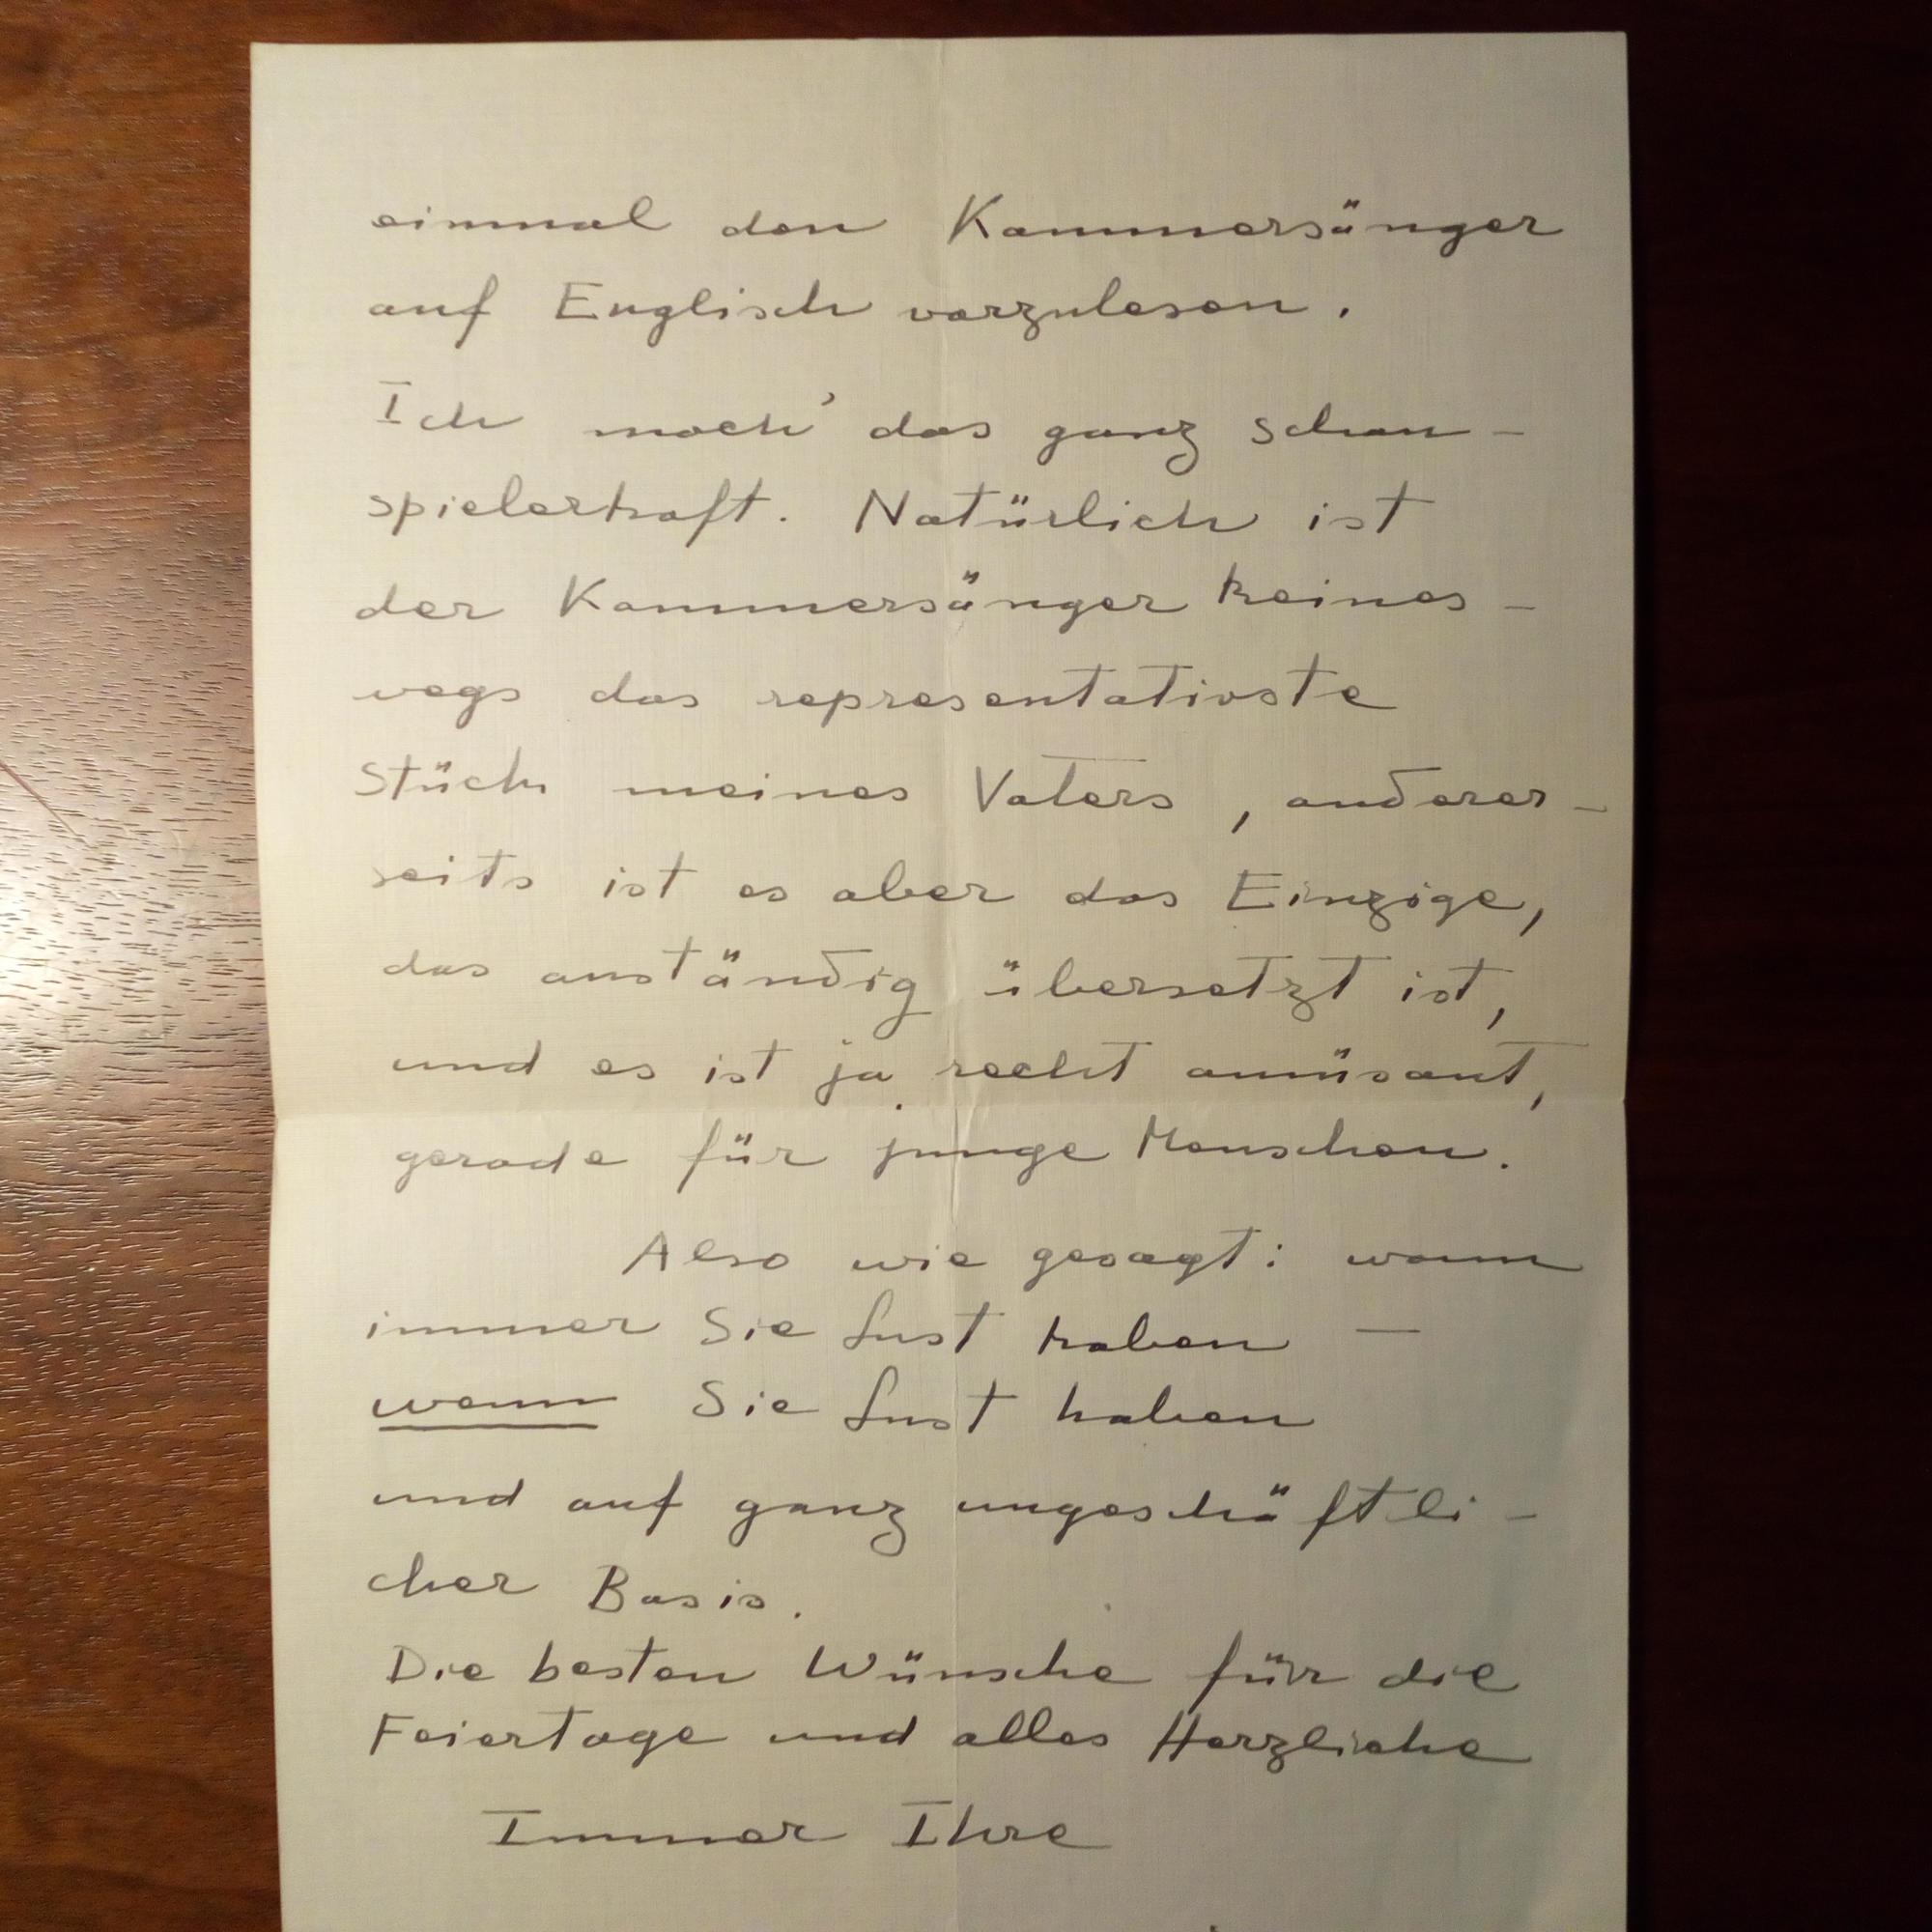 einmal den Kammersänger
auf Englisch vorzulesen.
Ich mach' das ganz schau-
spielerhaft. Natürlich ist
der Kammersänger keines-
wegs das representativste
Stück meines Vaters, anderer-
seits ist es aber das Einzige,
das anständig übersetzt ist,
und es ist ja recht amüsant,
gerade für junge Menschen.
Also wie gesagt: wann
immer Sie Lust haben —
wenn Sie Lust haben
und auf ganz ungeschäftli-
cher Basis.
Die besten Wünsche für die
Feiertage und alles Herzliche
Immer Ihre